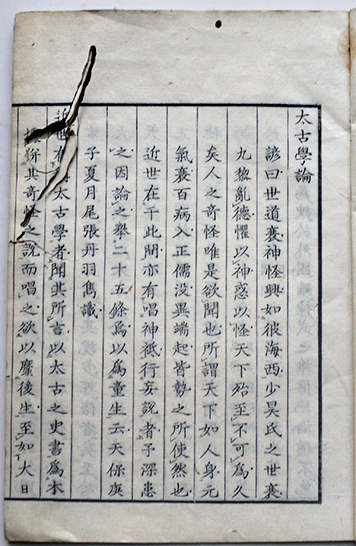 太古學論
諺曰世道衰神怪興如彼海西少昊氏之世衰
九黎亂德懼以神惑以怪天下殆至不可爲久
矣人之奇怪唯是欲聞也所謂天下如人身元
氣衰百病入正儒没異端起皆勢之所使然也
近世在于此間亦有唱神祇行妄說者予深患
之因論之擧二十五條爲以爲童生云天保庚
子夏月尾張丹羽雋識
近世有太古學者聞其所言以太古之史書爲本
新其奇怪之說而唱之欲以縻後生至如大日